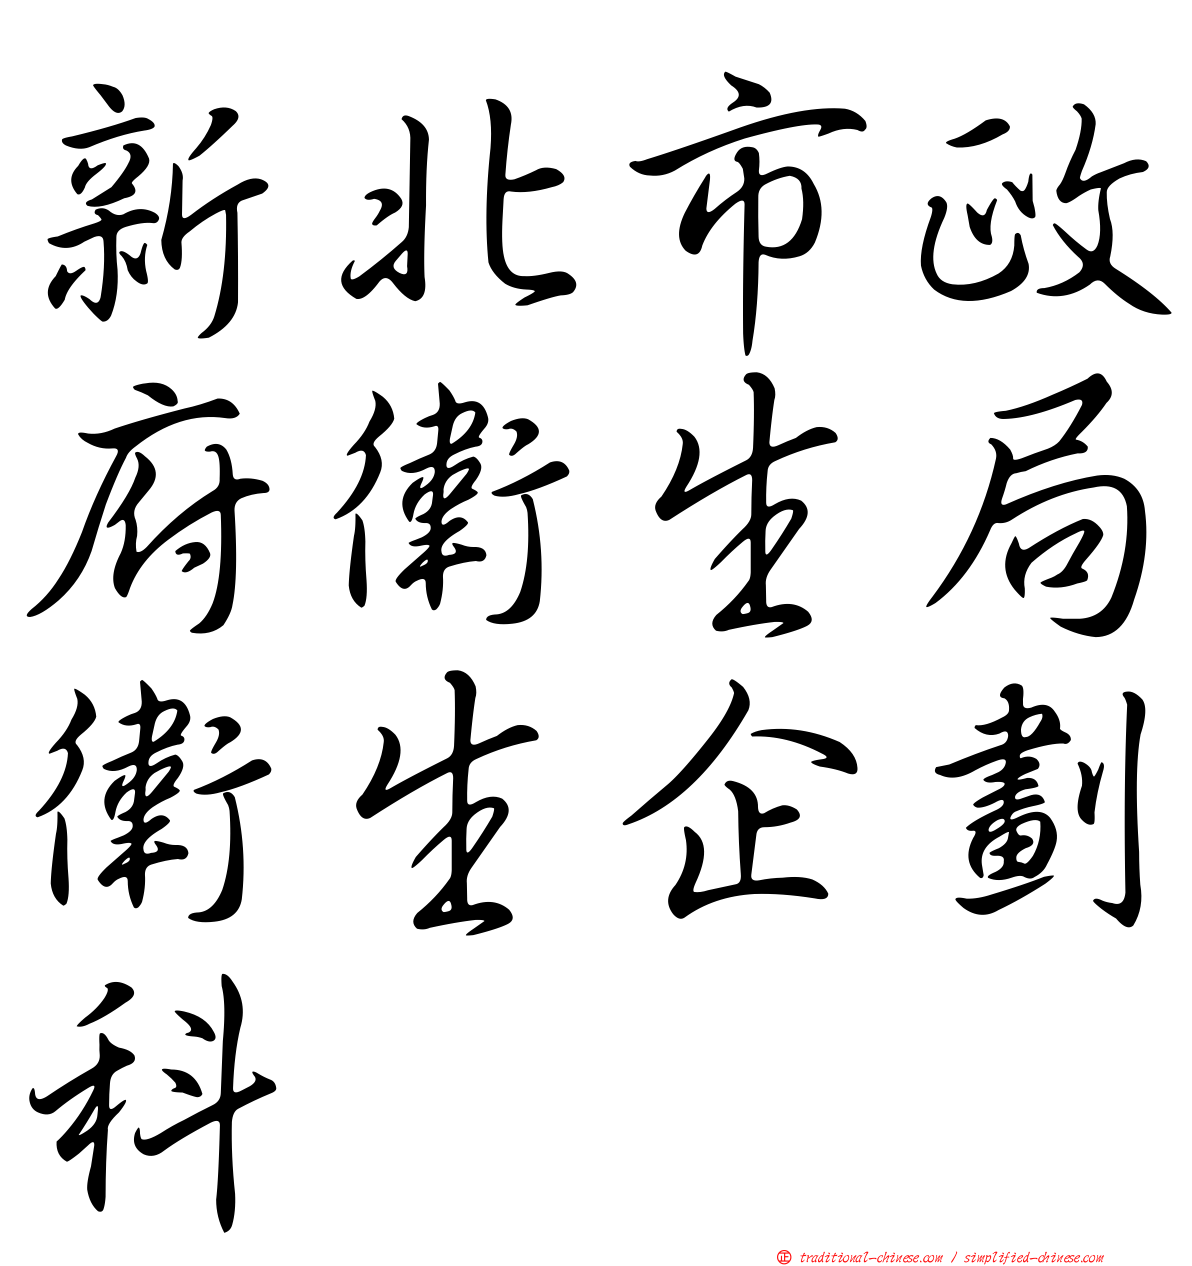 新北市政
府衛生局
衛生企劃
科
正 traditional-chinese.com / simplified-chinese.com